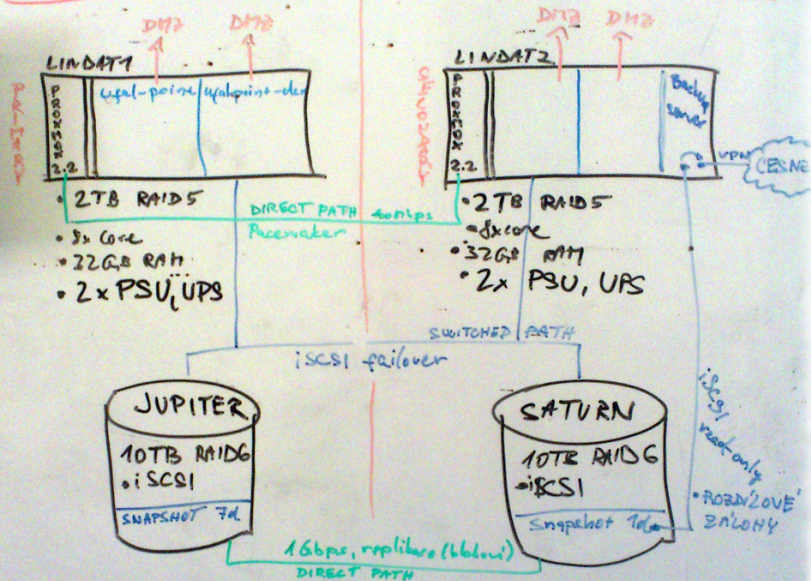 DMZ DMZ
LINDAT1
PRIMARY
PROXMOX 2.2
ufal-point
ufalpoint-dev
• 2TB RAID5
• 8x core
• 32GB RAM
• 2x PSU, UPS
DMZ DMZ
LINDAT2
PROXMOX 2.2
Backup server
VPN
CESNE
• 2TB RAID5
• 8xcore
• 32GB RAM
• 2x PSU, UPS
DIRECT PATH
Pacemaker
SWITCHED PATH
iSCSI failover
JUPITER
10TB RAID6
• iSCSI
SNAPSHOT 7d
SATURN
10TB RAID6
• iSCSI
Snapshot 1d
iSCSI
read only
• ROZDÍLOVÉ
ZÁLOHY
1Gbps, replikace
DIRECT PATH